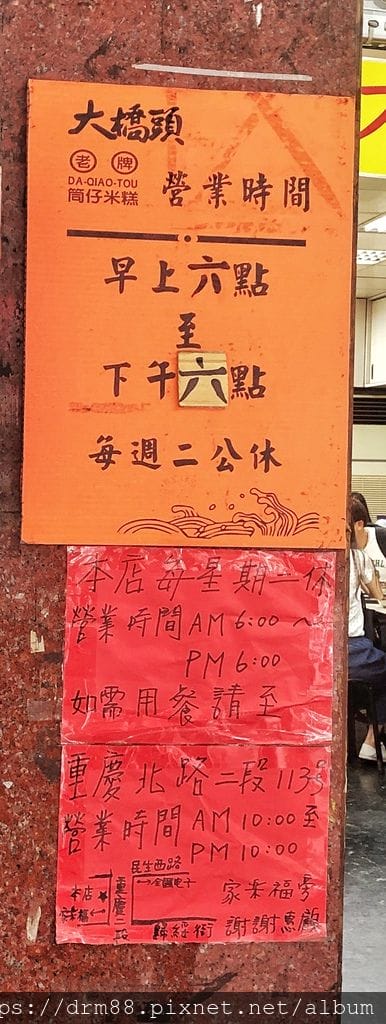 大橋頭
老牌
DA-QIAO-TOU
筒仔米糕
營業時間
早上六點
至
下午六點
每週二公休
本店每星期二休
營業時間 AM 6:00～
PM 6:00
如需用餐請至
重慶北路二段113号
營業時間 AM 10:00至
PM 10:00
民生西路
全國电子
本店
重慶二段
歸綏街
謝謝惠顧
ps://drm88.pixnet.net/album